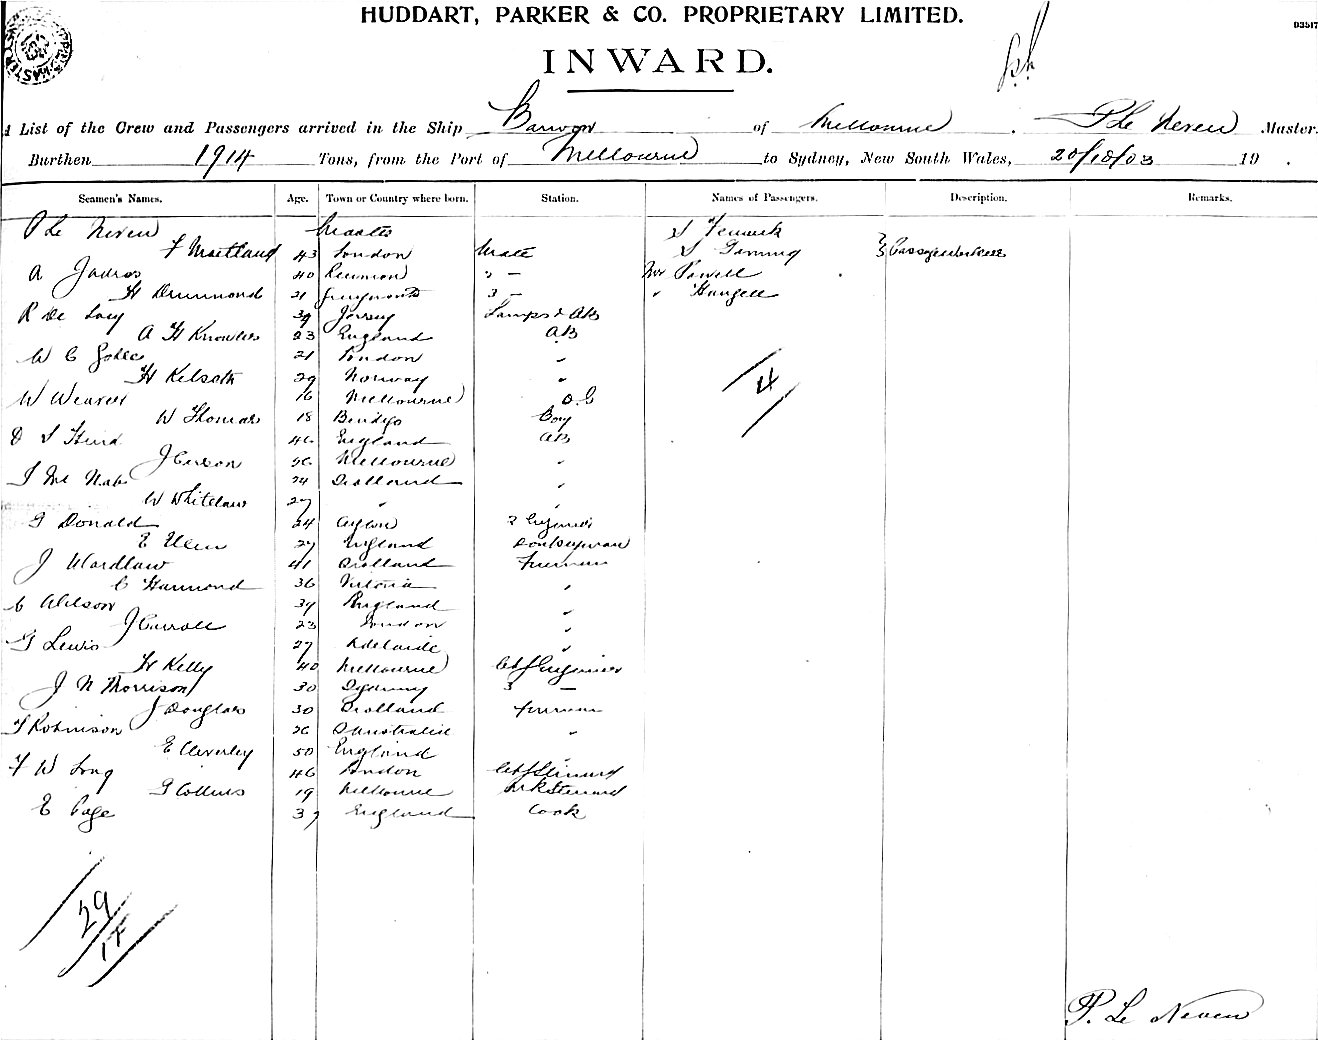 HUDDART, PARKER & CO. PROPRIETARY LIMITED.
INWARD.
D3517
A List of the Crew and Passengers arrived in the Ship Barwon of Melbourne. P Le Neven Master.
Burthen 1914 Tons, from the Port of Melbourne to Sydney, New South Wales, 20/10/03 19 .
Seamen's Names. Age. Town or Country where born. Station. Names of Passengers. Description. Remarks.
P Le Neven Master S Fenwick
F Maitland 43 London Mate S
A 40 Reunion " — Mr Powell
H Drummond 31 3 — "
R De Lacy 39 Jersey Lamps & AB
A H Knowles 23 England AB
W C 21 London "
H 29 Norway "
W Weaver 16 Melbourne O.S
W Thomas 18 Bendigo Boy
D S Hird 46 England AB
J Carson Melbourne "
J Mc Nab 24 Scotland "
W Whitelaw 27 " "
G Donald 24 Ceylon 2
E 27 England Donkeyman
J Wardlaw 41 Scotland Fireman
C Hammond 36 Victoria "
C Wilson 34 England "
J Carroll 23 London "
G Lewis 27 Adelaide "
H Kelly 40 Melbourne Chf Engineer
J N Morrison 30 Sydney 3 —
J Douglas 30 Scotland Fireman
T Robinson 26 S Australia "
E Cleverley 50 England "
F W Long 46 London Chf Steward
G Collins 19 Melbourne Steward
E Page 37 England Cook
4
29
P. Le Neven